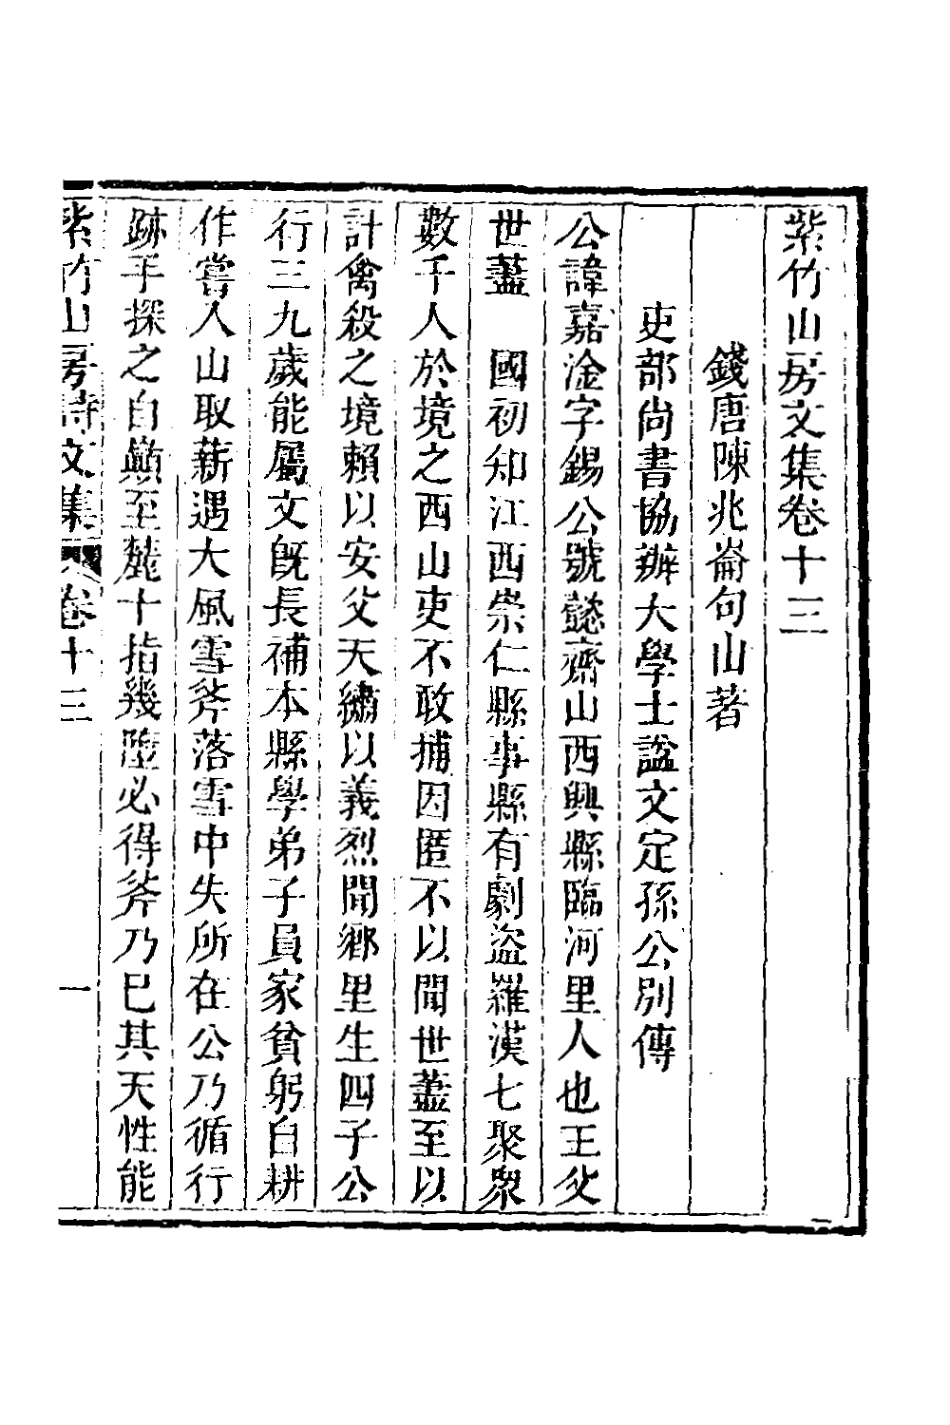 紫竹山房文集卷十三
錢唐陳兆崙句山著
吏部尚書協辦大學士諡文定孫公別傳
公諱嘉淦字錫公號懿齋山西興縣臨河里人也王父
世藎　國初知江西崇仁縣事縣有劇盜羅漢七聚衆
數千人於境之西山吏不敢捕因匿不以聞世藎至以
計禽殺之境賴以安父天繡以義烈聞鄉里生四子公
行三九歲能屬文旣長補本縣學弟子員家貧躬自耕
作嘗入山取薪遇大風雪斧落雪中失所在公乃循行
跡手探之自巔至麓十指幾墮必得斧乃已其天性能
紫竹山房詩文集 卷十三 一